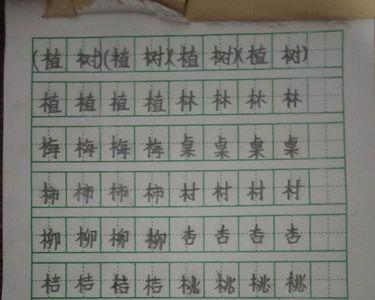 (植树)(植树)(植树)(植树)
植植植植林林林林
梅梅梅梅桌桌桌桌
柿柿柿柿村村村村
柳柳柳柳杏杏杏杏
桔桔桔桔桃桃桃桃